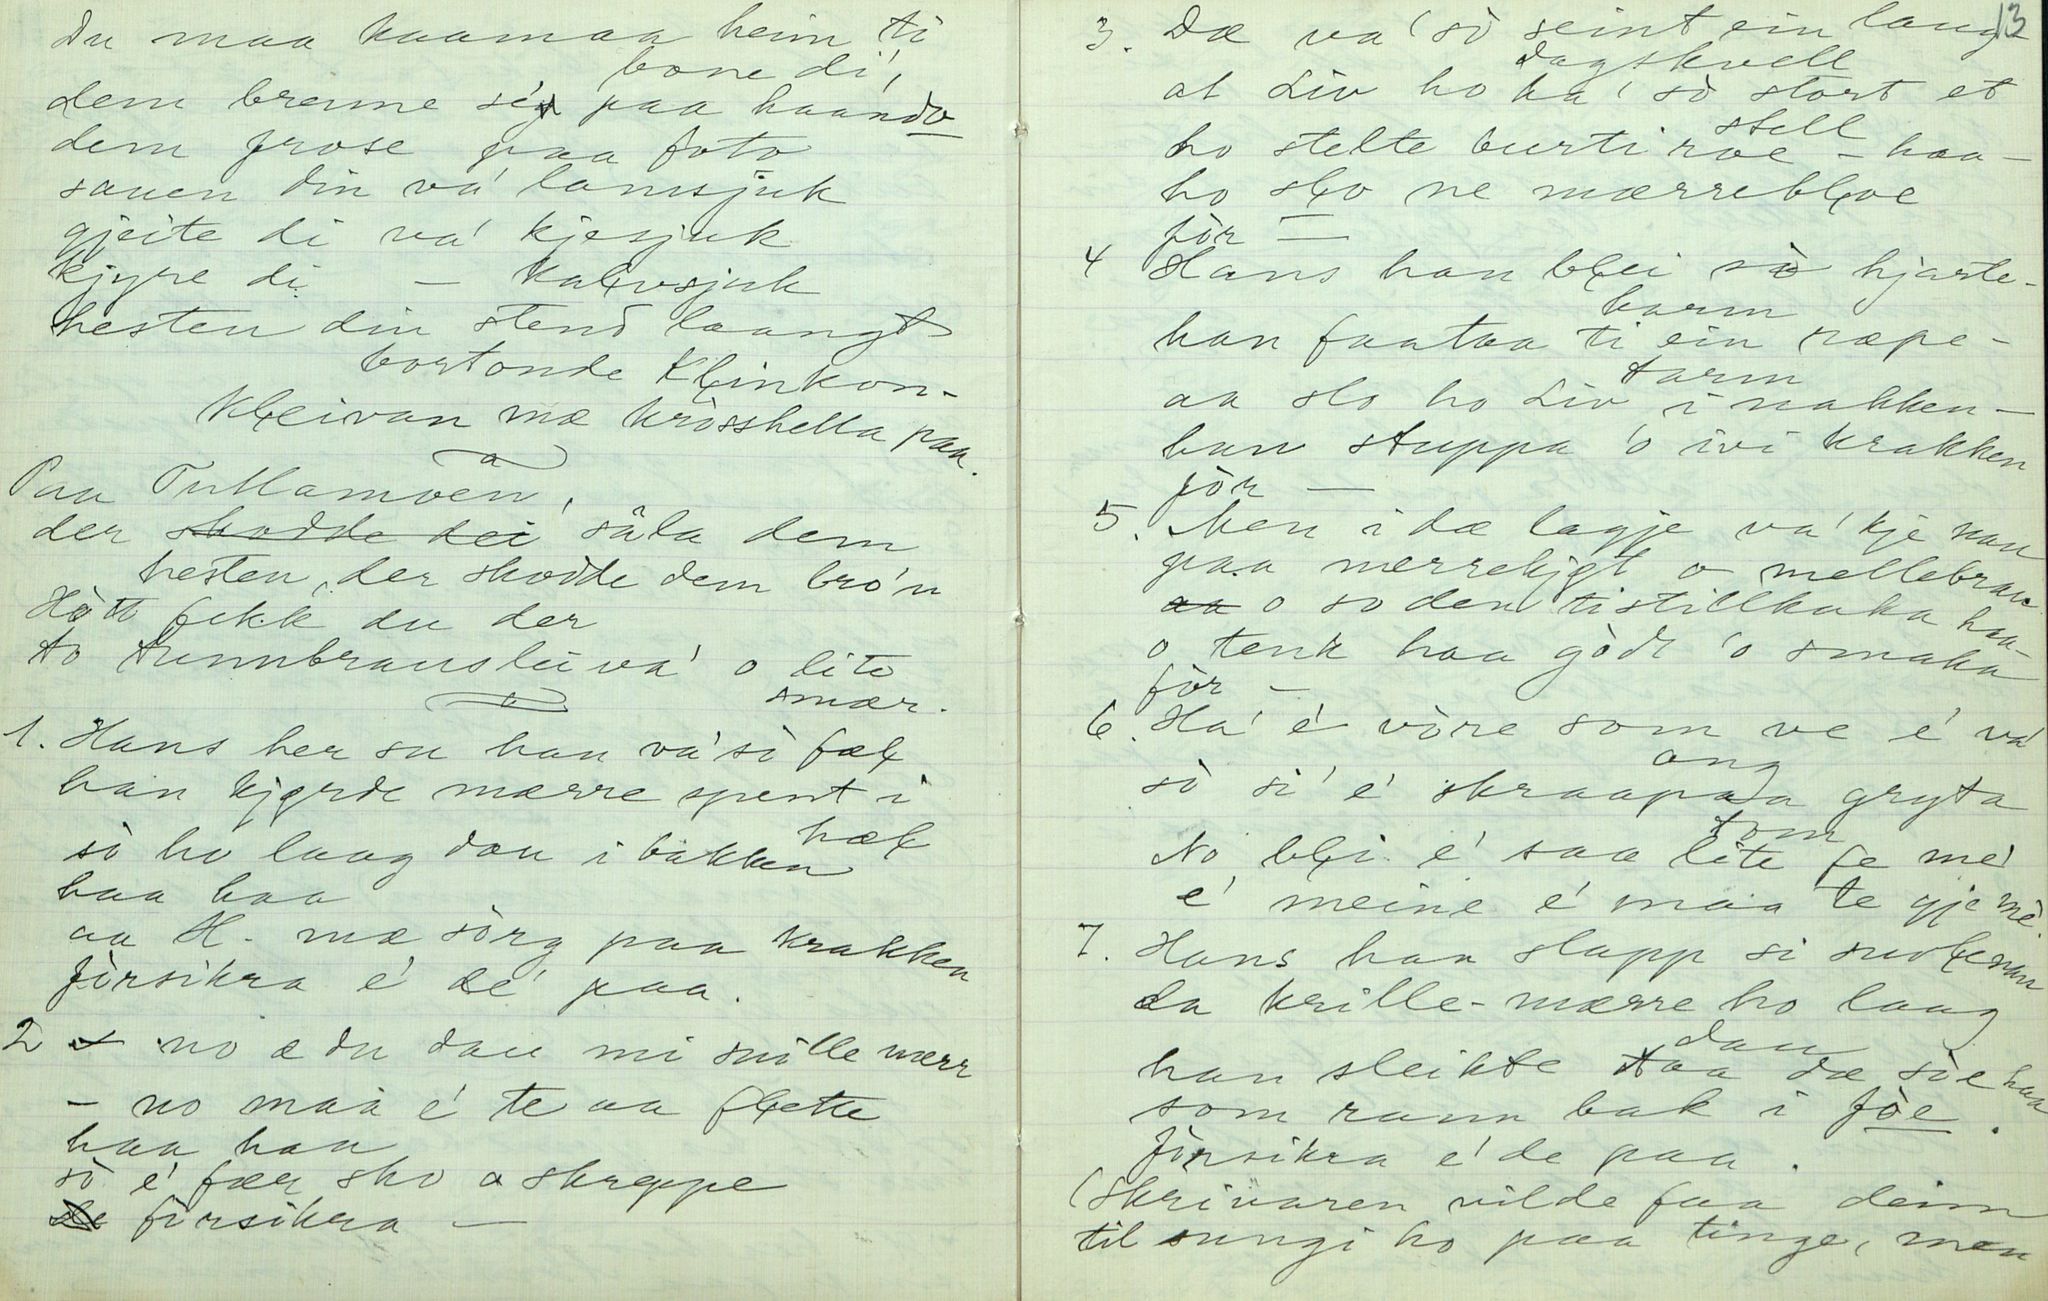 du maa kaamaa heim ti
bone di,
dem brenne seg paa haando
dem frose paa foto
sauen din va' lamsjuk
gjeite di va' kjesjuk
kjyre di – kalvsjuk
hesten din stend laangt
bortonde Klinkon-
kleivan mæ krosshella paa.
Paa Tullamoen,
der skodde dei såla dem
hesten, der skodde dem bro'n
Hòtt fekk du der
to tunnbrausleiva' o lite
smær.
1. Hans her su han va' sò fæl
han kjørde mærre spent i
hæl
sò ho laag dau i bakken
haa haa
aa H. mæ sòrg paa krakken
fòrsikra e' de' paa.
2 no æ du dau mi snille mærr
– no maa e' te aa flette
haa haa
sò e' fær sko o skreppe
fòrsikra —
13
3. Dæ va' sò seint ein laug
dagskvell
at Liv ho ha' sò stort et
stell
ho stelte burti roe – haa –
ho slo ne mærrebloe
fòr —
4 Hans han blei sò hjarte-
harm
han faataa ti ein ræpe-
tarm
aa slo ho Liv i nakken –
han stuppa 'o ivi krakken
fòr —
5. Men i dæ lagje va' kje nau
paa mærrekjøt o mellebrau
aa o so den tistillkaka haa-
o tenk haa gòdt 'o smaka
fòr –
6. Ha' e' vòre som ve e' va'
ong
sò si' e' skraapaa gryta
tom
No bli e' saa lite fe me'
e' meine e' maa te gje mè.
7. Hans han slapp si
da krille-mærre ho laag
dau
han sleikte taa dæ sòe haa
som rann bak i fòe.
fòrsikra e' de paa.
(Skrivaren vilde faa deim
til sungi ho paa tinge, men